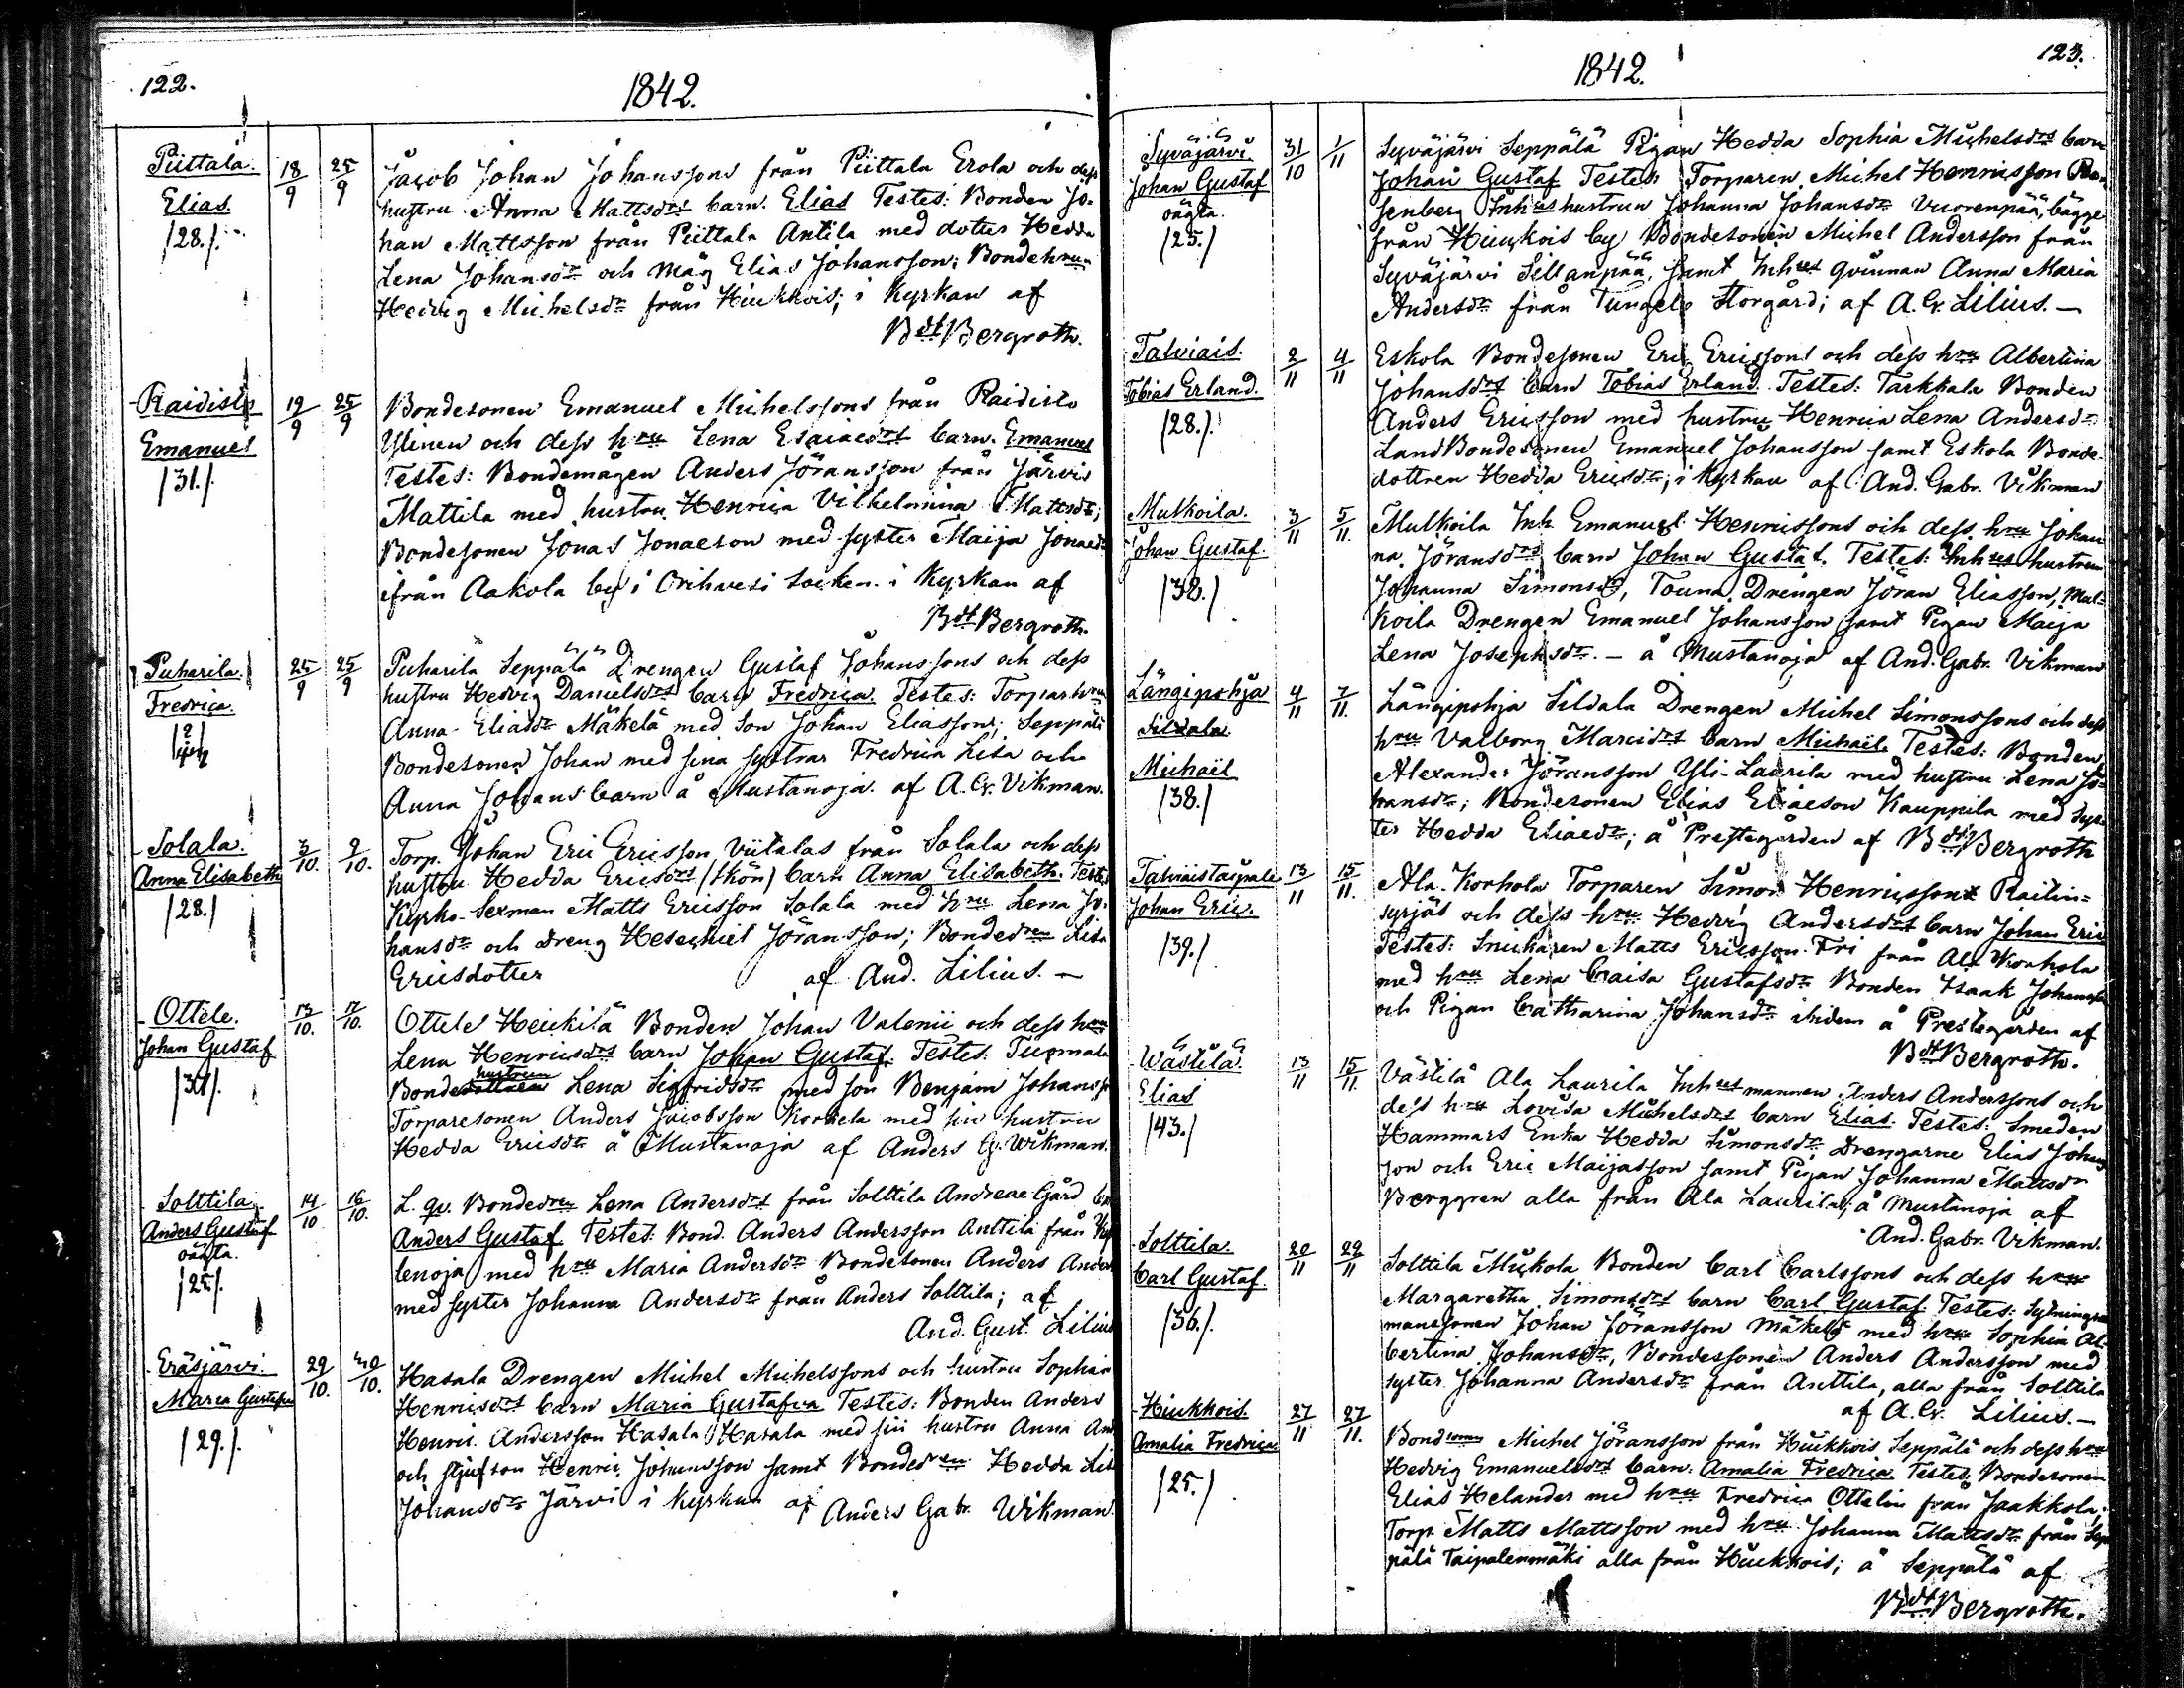 122.
1842.
Piittala.
Elias.
/28./.
18/9
25/9
Jacob Johan Johanssons från Piittala Erola och dess
hustru Anna Mattsdrs barn. Elias Testes: Bonden Jo-
han Mattsson från Piittala Antila med dotter Hedda
Lena Johansdr och Måg Elias Johansson; Bondehrun
Hedvig Michelsdr från Hiukkois; i Kyrkan af
Bdt Bergroth.
Raidisto
Emanuel
/31./
19/9
25/9
Bondesonen Emanuel Michelssons från Raidisto
Ylinen och dess hru Lena Esaiaedrs barn. Emanuel
Testes: Bondemågen Anders Jöransson från Järvis
Mattila med hustru Henrica Vilhelmina Mattsdr;
Bondesonen Jonas Jonaeson med syster Maija Jonaedr
ifrån Aakola by i Orihvesi socken. i Kyrkan af
Bdt Bergroth.
Puharila.
Fredrica.
25/9
25/9
Puharila Seppälä Drengen Gustaf Johanssons och dess
hustru Hedvig Danielsdrs barn Fredrica. Testes: Torpar.hru
Anna Eliadr Mäkelä med Son Johan Eliasson; Seppälä
Bondesonen Johan med sina systrar Fredrica Lisa och
Anna Johans barn å Mustanoja. af A. G. Vikman.
Solala.
Anna Elisabeth
/28./
3/10.
9/10.
Torp. Johan Eric Ericsson Viitalas från Solala och dess
hustru Hedda Ericsdrs (Skön) barn Anna Elisabeth. Testes
Kyrko-Sexman Matts Ericsson Solala med hru Lena Jo-
hansdr och Dreng Hesechiel Jöransson; Bondedren Lisa
Ericsdotter af And. Lilius. —
Ottele.
Johan Gustaf
/31/.
13/10.
17/10.
Ottele Heickilä Bonden Johan Valenii och dess hru
Lena Henricsdrs barn Johan Gustaf. Testes: Tuomala
hustrun
Bondedottren Lena Sigfridsdr med son Benjam Johansson
Torparesonen Anders Jacobsson Korkela med sin hustru
Hedda Ericsdr å Mustanoja af Anders G. Wikman.
Solttila.
Anders Gustaf
oägta.
/25/.
14/10
16/10.
L. qv. Bondedren Lena Andersdrs från Solttila Andreae Gård
Anders Gustaf. Testes: Bond. Anders Andersson Anttila från
lenoja med hru Maria Andersdr Bondesonen Anders Anders
med syster Johanna Andersdr från Anders Solttila; af
And. Gust. Lilius
Eräsjärvi.
Maria Gustafva
/29./.
29/10.
30/10.
Hasala Drengen Michel Michelssons och hustru Sophia
Henricsdrs barn Maria Gustafva Testes: Bonden Anders
Henric Andersson Hasala Hasala med sin hustru Anna
och stjufson Henric Johansson samt Bondedren Hedda Lisa
Johansdr Järvi i Kyrkan af Anders Gabr. Wikman.
1842.
123.
Syväjärvi
Johan Gustaf
oägta.
/25./
31/10
1/11
Syväjärvi Seppälä Pigan Hedda Sophia Michelsdrs barn
Johan Gustaf Testes: Torparen Michel Henricsson Ro-
senberg Inhushustrun Johanna Johansdr Vuorenpää, bägge
från Hiuckois by Bondesonen Michel Andersson från
Syväjärvi Sillanpää, samt Inhses qvinnan Anna Maria
Andersdr från Tungelo Storgård; af A. G. Lilius. —
Talviais.
Tobias Erland.
/28./.
2/11
4/11
Eskola Bondesonen Eric Ericssons och dess hru Albertina
Johansdrs barn Tobias Erland. Testes: Tarkkala Bonden
Anders Ericsson med hustru Henrica Lena Andersdr
LandBondesonen Emanuel Johansson samt Eskola Bonde-
dottren Hedda Ericsdr; i Kyrkan af And. Gabr. Vikman
Mulkoila.
Johan Gustaf.
/38./
3/11
5/11.
Mulkoila Inh. Emanuel Henricssons och dess hru Johan-
na Jöransdrs barn Johan Gustaf. Testes: Inhses hustrun
Johanna Simonsdr, Touna Drengen Jöran Eliasson, Mul-
koila Drengen Emanuel Johansson samt Pigan Maija
Lena Josephsdr. — å Mustanoja af And. Gabr. Vikman
Längipohja
Sildala
Michaël
/38./
4/11
7/11.
Längipohja Sildala Drengen Michel Simonssons och dess
hru Valborg Marcidrs barn Michaël. Testes: Bonden
Alexander Jöransson Yli-Laurila med hustru Lena Jo-
hansdr; Bondesonen Elias Eliaeson Kauppila med sys-
ter Hedda Eliaedr; å Prestegården af Bdt Bergroth
Talviaistaipale
Johan Eric.
/39./
13/11
15/11.
Ala-Korhola Torparen Simon Henricssons Raitin-
syrjäs och dess hru Hedvig Andersdrs barn Johan Eric
Testes: Snickaren Matts Ericsson Fri från Ala Korhola
med hru Lena Caisa Gustafsdr Bonden Isaak Johansson
och Pigan Catharina Johansdr ibidem å Prestegården af
Bdt Bergroth.
Wästilä.
Elias
/43./
13/11
15/11.
Västilä Ala Laurila Inhses mannen Anders Anderssons och
dess hru Lovisa Michelsdrs barn Elias. Testes: Smeden
Hammars Enka Hedda Simonsdr Drengarne Elias Johans-
son och Eric Maijasson samt Pigan Johanna Mattsdr
Berggren alla från Ala Laurila; å Mustanoja af
And. Gabr. Vikman.
Solttila.
Carl Gustaf.
/36./.
20/11
22/11
Solttila Muckola Bonden Carl Carlssons och dess hru
Margaretha Simonsdrs barn Carl Gustaf. Testes: Sytnings-
mansonen Johan Jöransson Mäkelä med hru Sophia Al-
bertina Johansdr, Bondessonen Anders Andersson med
syster Johanna Andersdr från Anttila, alla från Solttila
af A. G. Lilius. —
Hiukkois.
Amalia Fredrica
/25./
27/11
27/11.
Bondsonen Michel Jöransson från Hiukkois Seppälä och dess hru
Hedvig Emanuelsdrs barn: Amalia Fredrica Testes: Bondesonen
Elias Helander med hru Fredrica Ottelin från Jaakkola;
Torp. Matts Mattsson med hru Johanna Mattsdr från Sep-
pälä Taipalenmäki alla från Hiukkois; å Seppälä af
Bdt Bergroth.